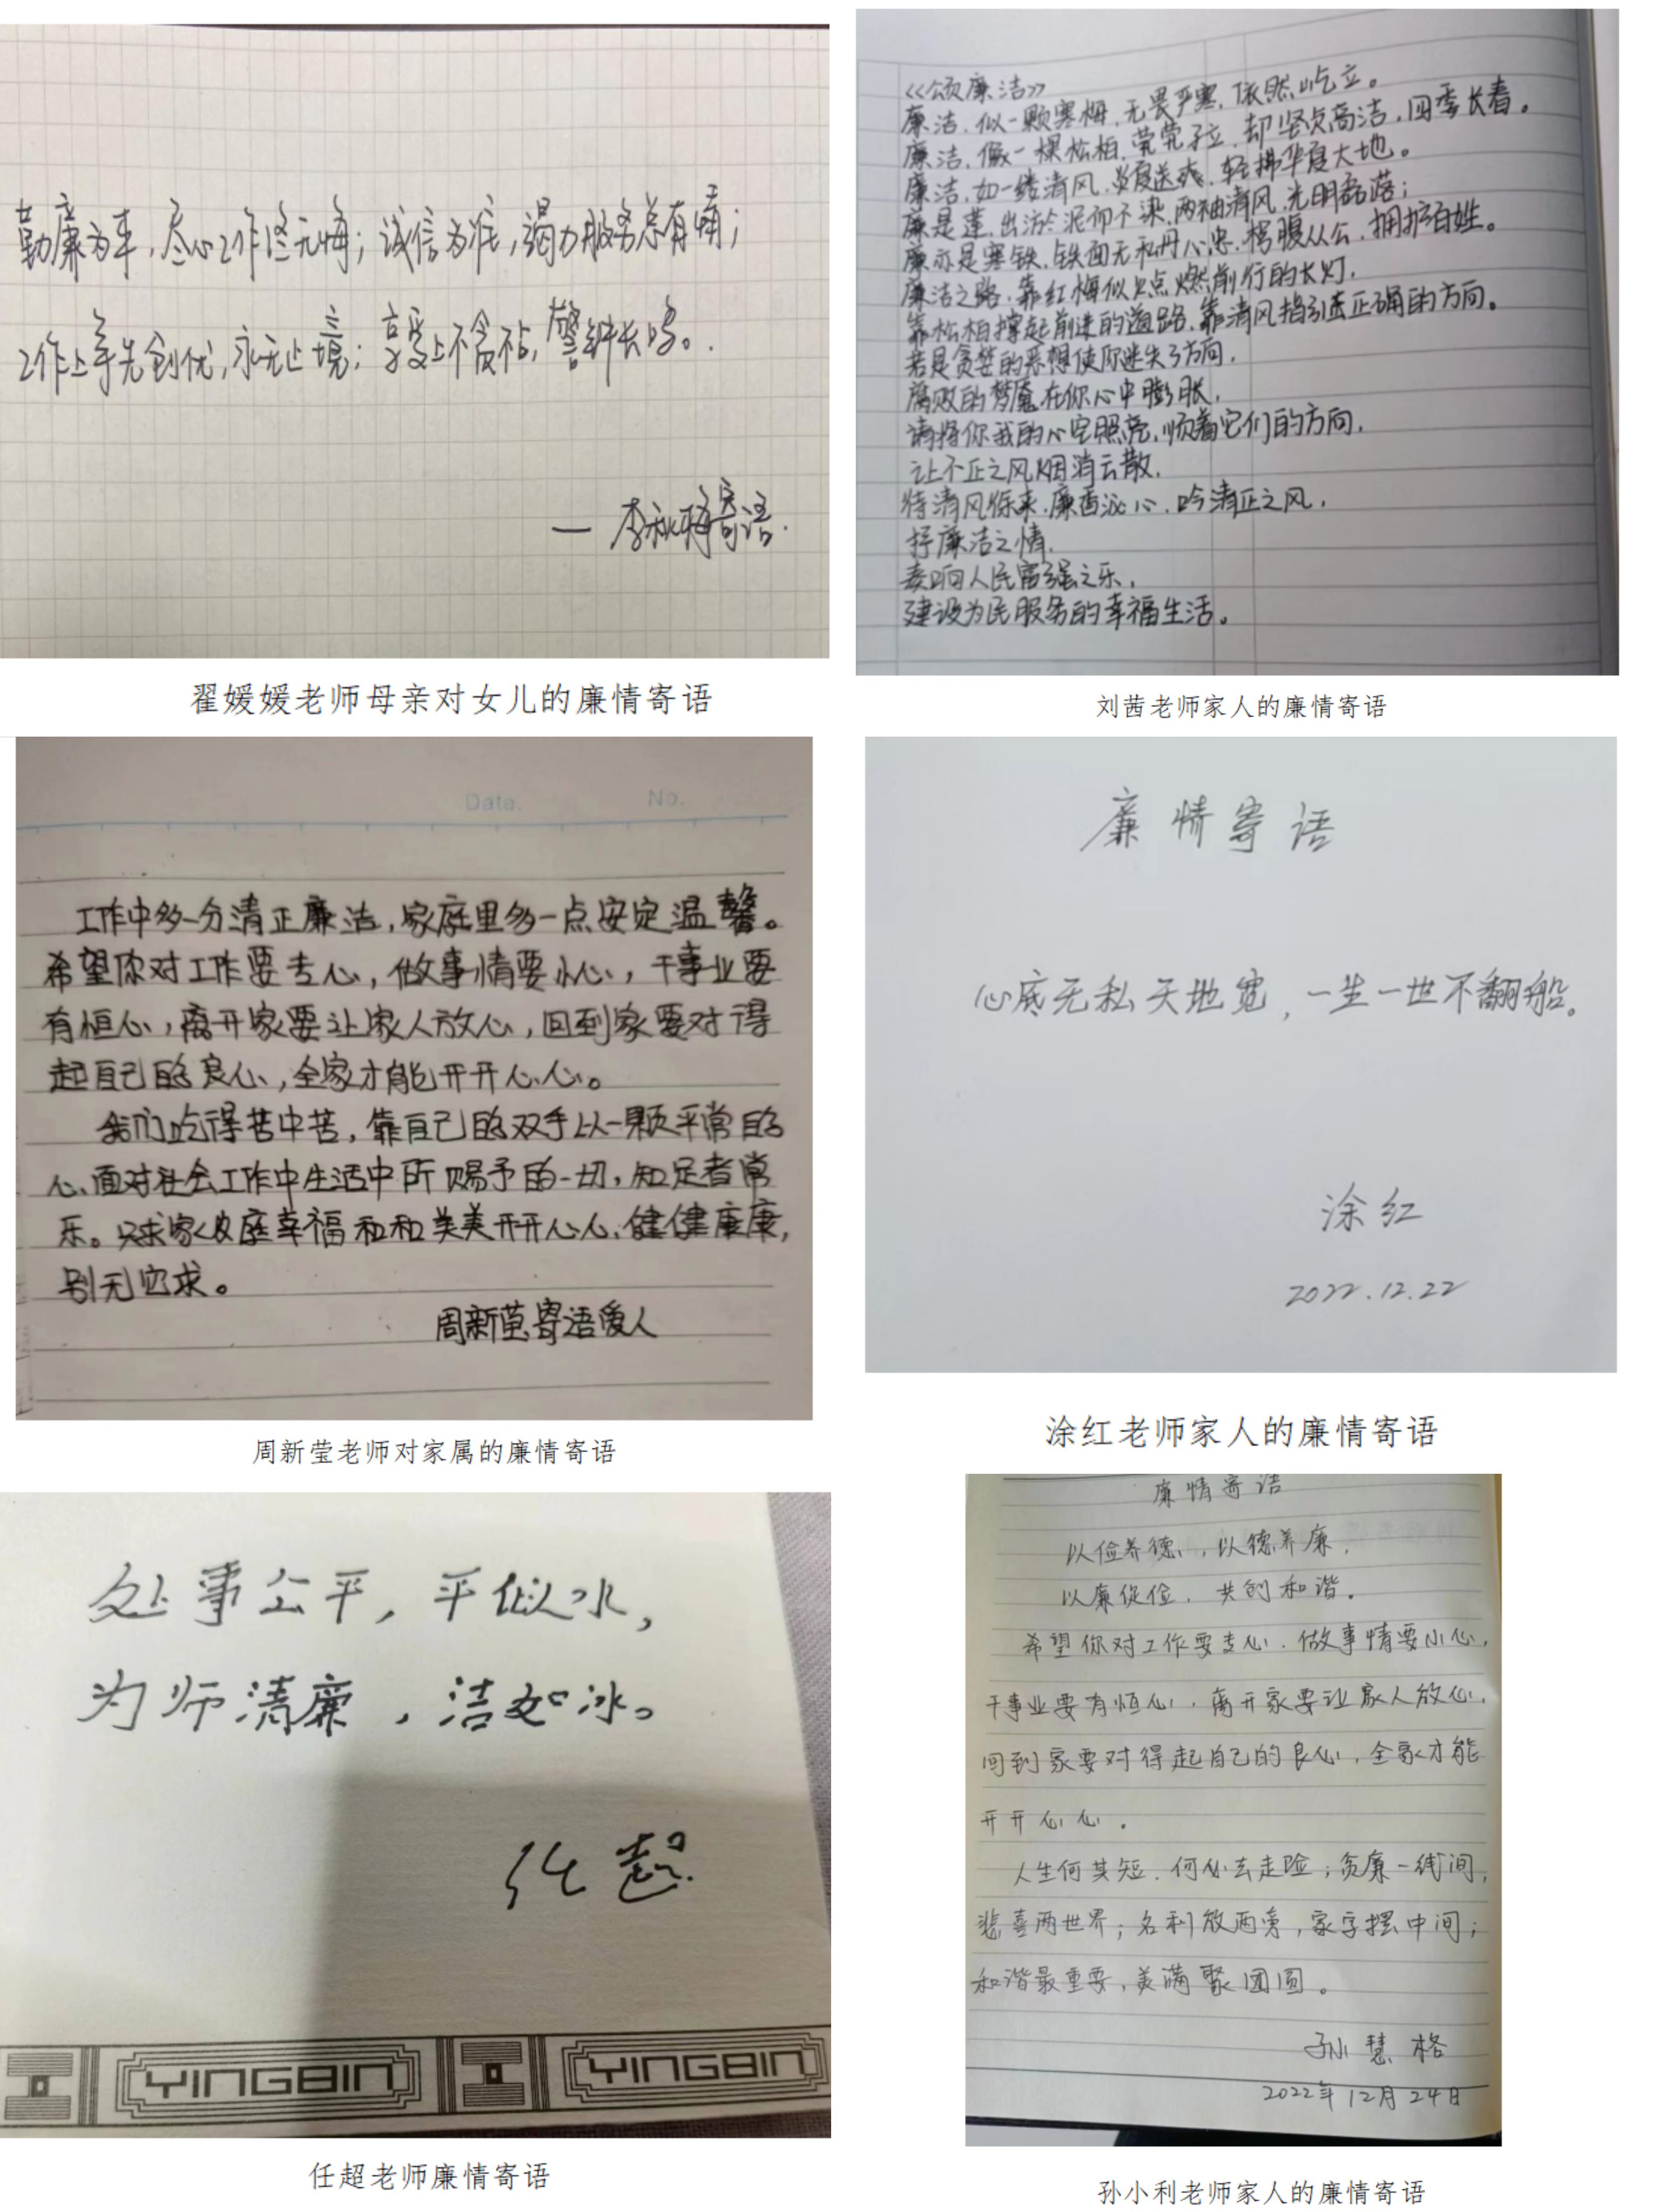 勤廉为本，尽心工作终无悔；诚信为准，竭力服务总有情；
工作上争先创优，永无止境；享受上不贪不占，警钟长鸣。
— 李秋梅寄语.
翟媛媛老师母亲对女儿的廉情寄语
《颂廉洁》
廉洁，似一颗寒梅，无畏严寒，依然屹立。
廉洁，像一棵松柏，茕茕孑立，却坚贞高洁，四季长春。
廉洁，如一缕清风，炎夏送爽，轻拂华夏大地。
廉是莲，出淤泥而不染，两袖清风，光明磊落；
廉亦是寒铁，铁面无私丹心忠，枵腹从公，拥护百姓。
廉洁之路，靠红梅似火点燃前行的长灯，
靠松柏撑起前进的道路，靠清风指引去正确的方向。
若是贪婪的恶想使你迷失了方向，
腐败的梦魇在你心中膨胀，
请将你我的心空照亮，顺着它们的方向，
让不正之风烟消云散，
待清风徐来，廉香沁心，吟清正之风，
抒廉洁之情，
奏响人民富强之乐，
建设为民服务的幸福生活。
刘茜老师家人的廉情寄语
Date. No.
工作中多一分清正廉洁，家庭里多一点安定温馨。
希望你对工作要专心，做事情要小心，干事业要
有恒心，离开家要让家人放心，回到家要对得
起自己的良心，全家才能开开心心。
我们吃得苦中苦，靠自己的双手以一颗平常的
心、面对社会工作中生活中所赐予的一切，知足者常
乐。只求家庭幸福和和美美开开心心，健健康康，
别无它求。
周新莹寄语爱人
周新莹老师对家属的廉情寄语
廉情寄语
心底无私天地宽，一生一世不翻船。
涂红
2022.12.22
涂红老师家人的廉情寄语
处事公平，平似水，
为师清廉，洁如冰。
任超
YINGBIN YINGBIN
任超老师廉情寄语
廉情寄语
以俭养德，以德养廉，
以廉促俭，共创和谐。
希望你对工作要专心，做事情要小心，
干事业要有恒心，离开家要让家人放心，
回到家要对得起自己的良心，全家才能
开开心心。
人生何其短，何必去走险；贪廉一线间，
悲喜两世界；名利放两旁，家字摆中间；
和谐最重要，美满聚团圆。
孙慧格
2022年12月24日
孙小利老师家人的廉情寄语